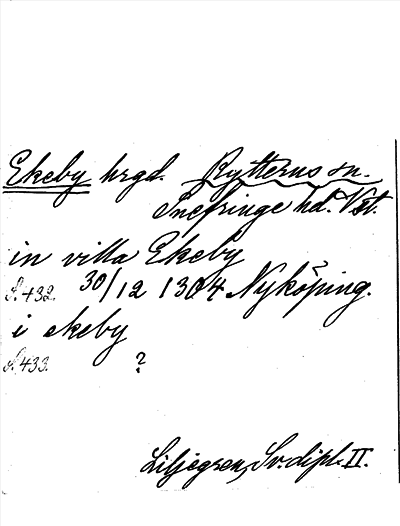 Ekeby hrgd. Rytterns sn.
Snefringe hd. Vst.
in villa Ekeby
S. 432. 30/12 1304 Nyköping.
i ekeby
S. 433. ?
Liljegren, Sv. dipl. II.